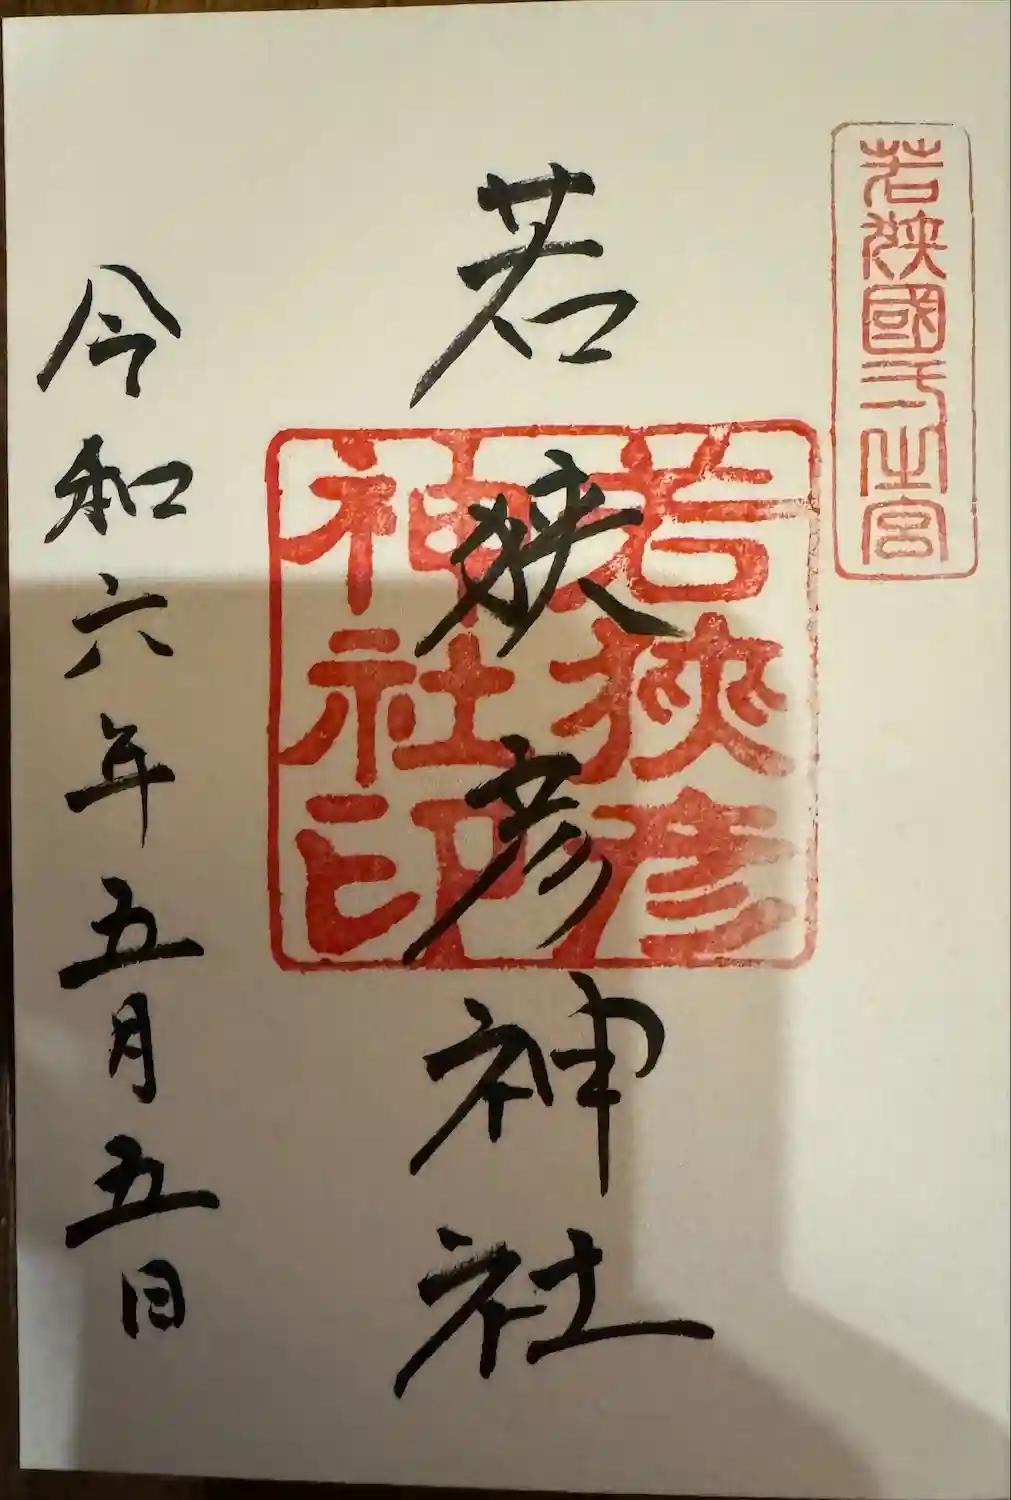 若狹國一之宮
若狭彦神社
若狹彦
神社印
令和六年五月五日